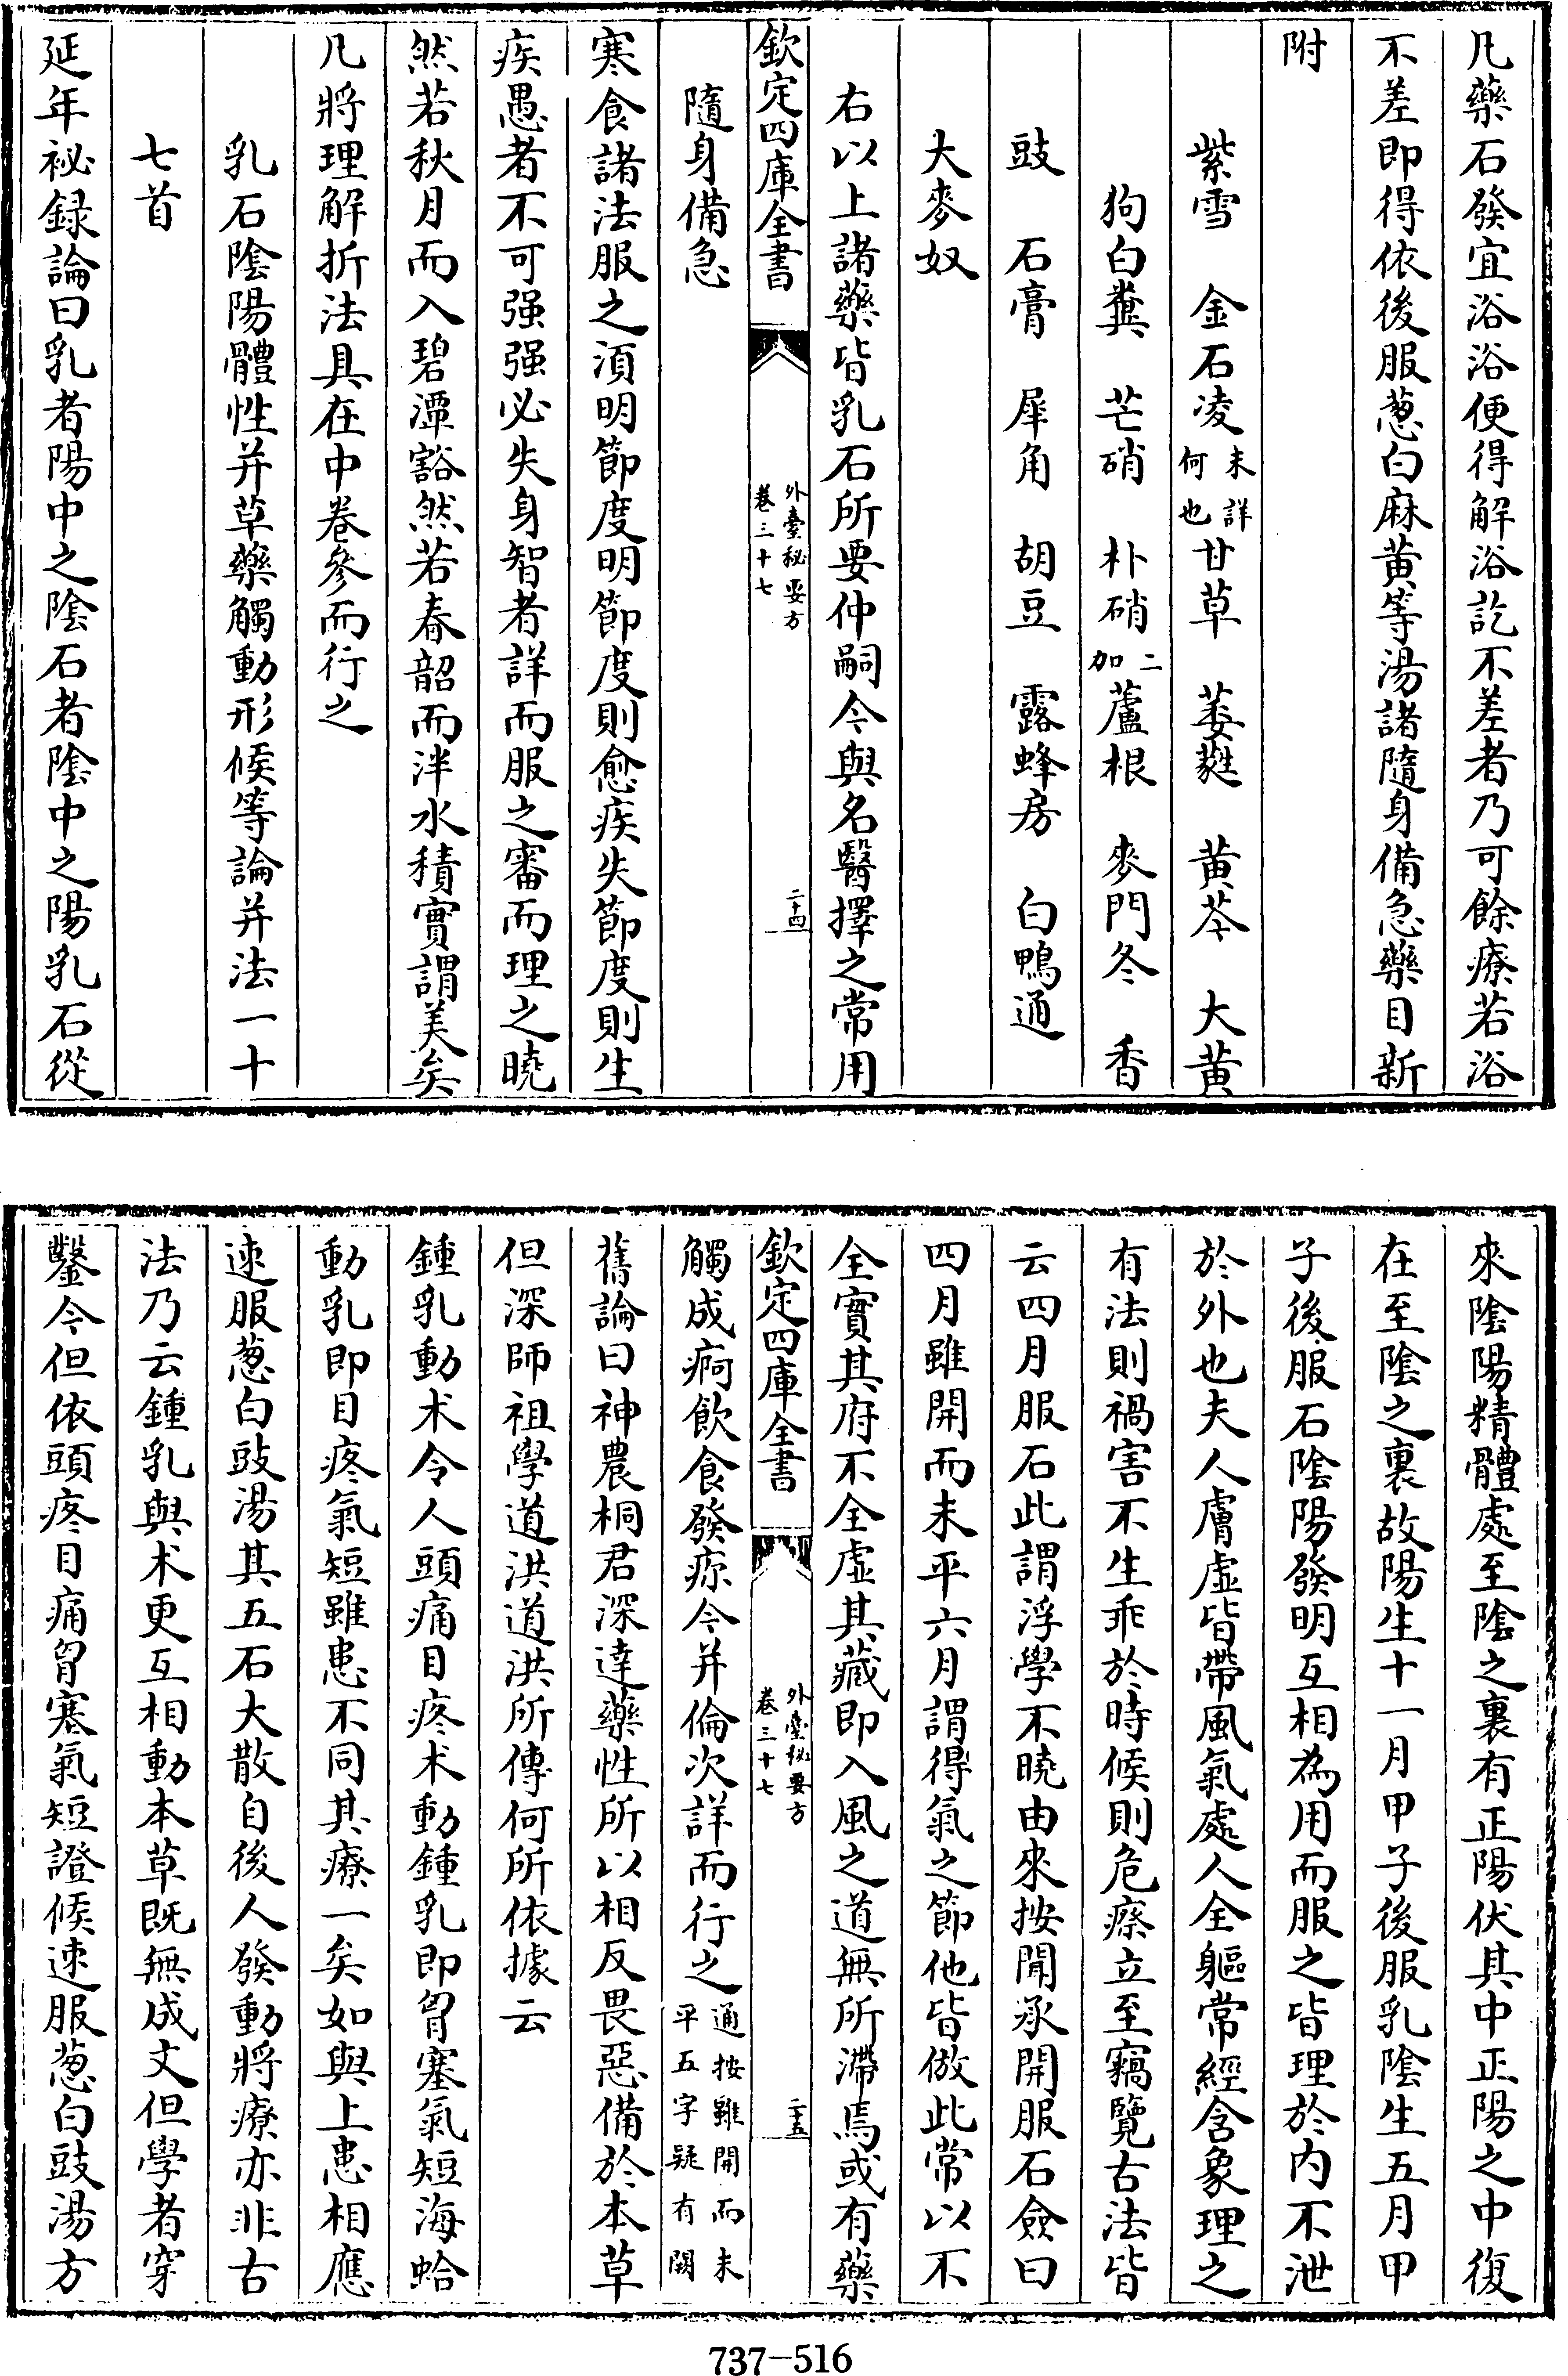 凡藥石發宜浴浴便得解浴訖不差者乃可餘療若浴
不差即得依後服葱白麻黄等湯諸隨身備急藥目新
附
紫雪　金石凌未詳何也甘草　萎蕤　黄芩　大黄
狗白糞　芒硝　朴硝二加蘆根　麥門冬　香
豉　石膏　犀角　胡豆　露蜂房　白鴨通
大麥奴
右以上諸藥皆乳石所要仲嗣今與名醫擇之常用
欽定四庫全書
外臺秘要方
卷三十七
二十四
隨身備急
寒食諸法服之湏明節度明節度則愈疾失節度則生
疾愚者不可强强必失身智者詳而服之審而理之曉
然若秋月而入碧潭豁然若春韶而泮水積實謂美矣
凡將理解折法具在中卷參而行之
乳石隂陽體性并草藥觸動形候等論并法一十
七首
延年祕録論曰乳者陽中之隂石者隂中之陽乳石從
來隂陽精體處至隂之裏有正陽伏其中正陽之中復
在至隂之裏故陽生十一月甲子後服乳隂生五月甲
子後服石隂陽發明互相為用而服之皆理於内不泄
於外也夫人膚虚皆帶風氣處人全軀常經含象理之
有法則禍害不生乖於時候則危瘵立至竊覽古法皆
云四月服石此謂浮學不曉由來按聞承開服石僉曰
四月雖開而未平六月謂得氣之節他皆倣此常以不
全實其府不全虚其藏即入風之道無所滯焉或有藥
欽定四庫全書
外臺秘要方
卷三十七
二十五
觸成痾飲食發疢今并倫次詳而行之通按雖開而未平五字疑有闕
舊論曰神農桐君深達藥性所以相反畏惡備於本草
但深師祖學道洪道洪所傳何所依據云
鍾乳動术令人頭痛目疼术動鍾乳即胷塞氣短海蛤
動乳即目疼氣短雖患不同其療一矣如與上患相應
速服葱白豉湯其五石大散自後人發動將療亦非古
法乃云鍾乳與术更互相動本草既無成文但學者穿
鑿今但依頭疼目痛胷塞氣短證候速服葱白豉湯方
737－516